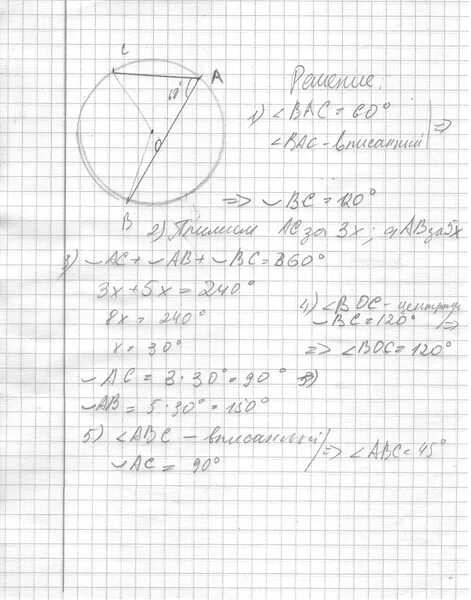 C
A
60°
O
B
Решение.
1) ∠BAC = 60°
∠BAC - вписанный | =>
=> ◡BC = 120°
2) Примем AC за 3x; а AB за 5x
3) ◡AC + ◡AB + ◡BC = 360°
3x + 5x = 240°
8x = 240°
x = 30°
◡AC = 3 · 30° = 90°
◡AB = 5 · 30° = 150°
4) ∠BOC - централь
◡BC = 120° | =>
=> ∠BOC = 120°
5) ∠ABC - вписанный
◡AC = 90° | => ∠ABC = 45°